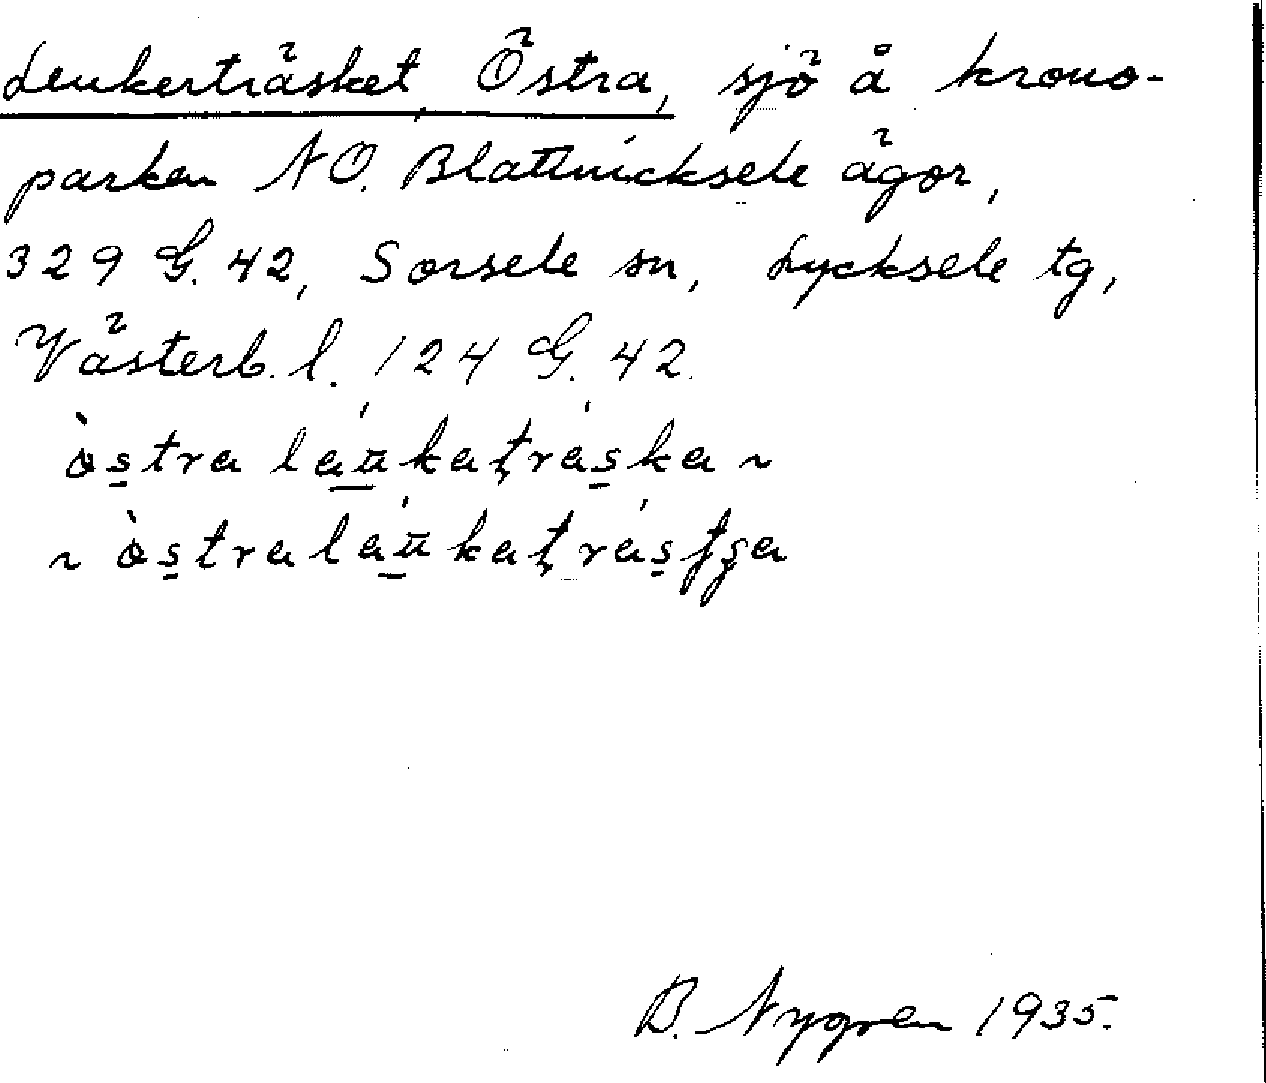 Leukerträsket, Östra, sjö å krono-
parken NO. Blattnicksele ägor,
329 G. 42, Sorsele sn, Lycksele tg,
Västerb. l. 124 G. 42.
B. Nygren 1935.